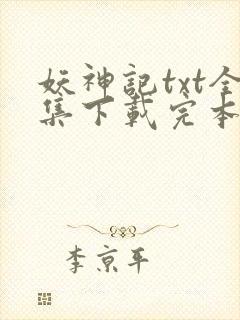 妖神記txt全
集下載完本
李京平